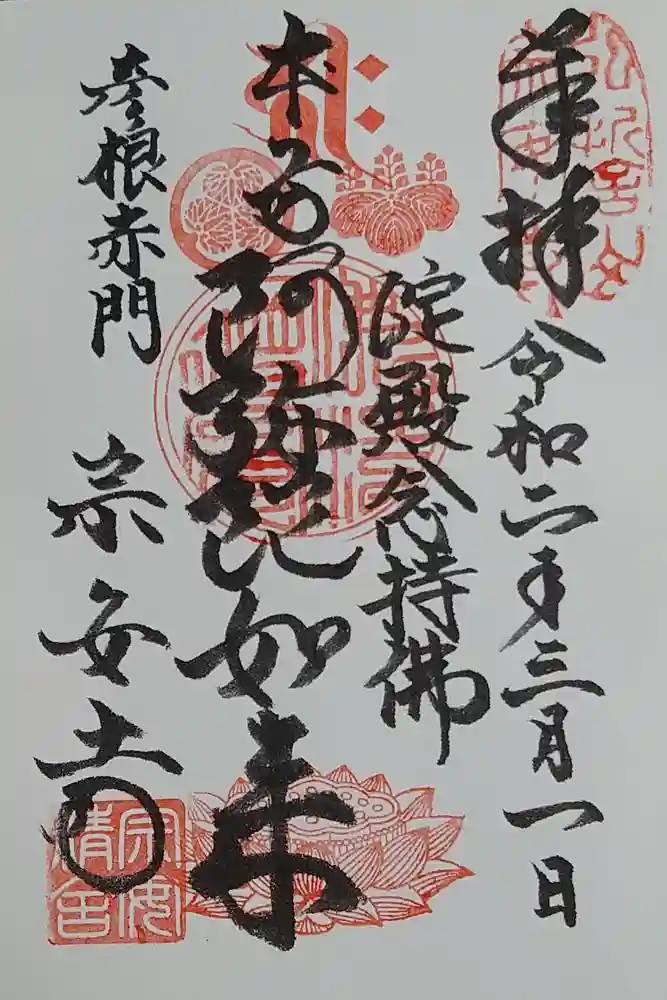 奉拝 令和二年三月一日
淀殿念持佛
本尊阿弥陀如来
彦根赤門
宗安寺